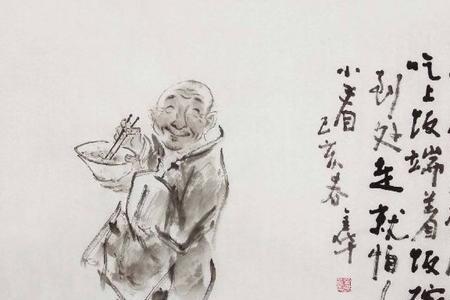 吃上饭端着饭碗
到处走就怕人
小看
己亥春